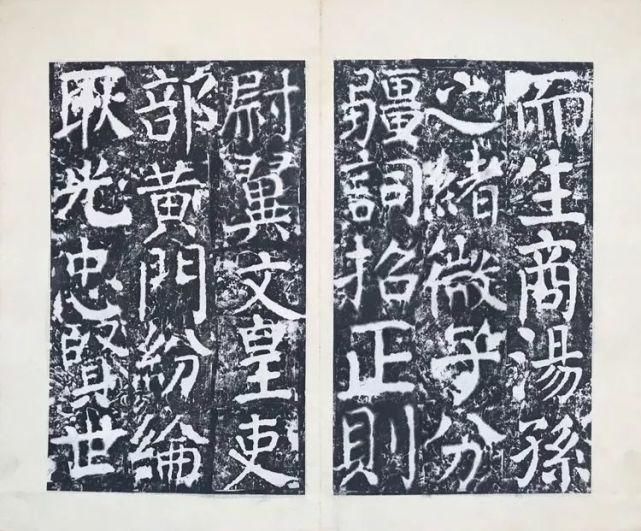 而生商湯孫
之緒微乎分
疆詞招正則
尉翼文皇吏
部黃門紛綸
耿光忠賢世